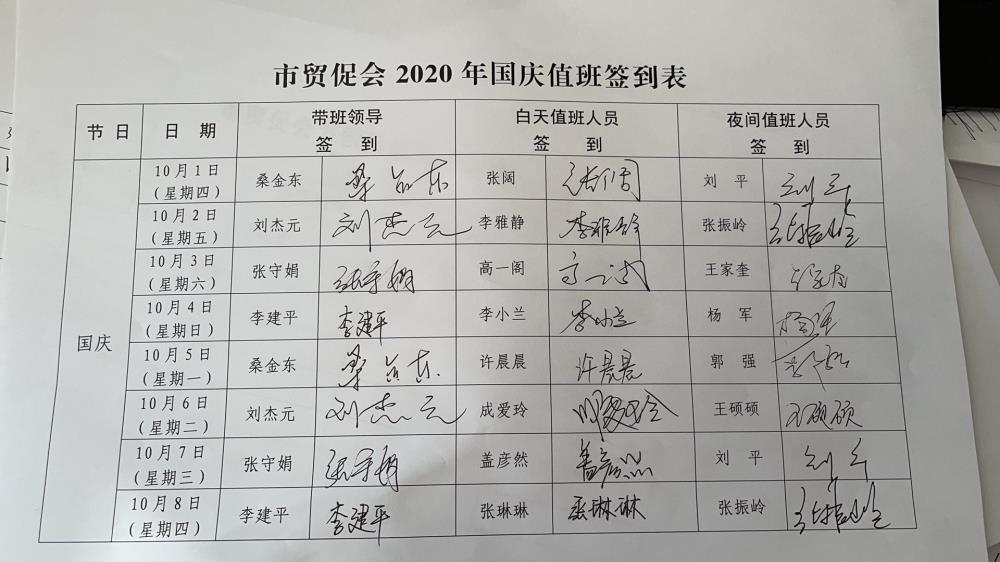 市贸促会 2020 年国庆值班签到表
节 日 日 期 带班领导 签 到 白天值班人员 签 到 夜间值班人员 签 到
国庆
10月1日 (星期四) 桑金东 桑金东 张阔 张阔 刘 平 刘平
10月2日 (星期五) 刘杰元 刘杰元 李雅静 李雅静 张振岭 张振岭
10月3日 (星期六) 张守娟 张守娟 高一阁 高一阁 王家奎
10月4日 (星期日) 李建平 李建平 李小兰 李小兰 杨 军 杨军
10月5日 (星期一) 桑金东 桑金东 许晨晨 许晨晨 郭 强 郭强
10月6日 (星期二) 刘杰元 刘杰元 成爱玲 成爱玲 王硕硕 王硕硕
10月7日 (星期三) 张守娟 张守娟 盖彦然 盖彦然 刘 平 刘平
10月8日 (星期四) 李建平 李建平 张琳琳 张琳琳 张振岭 张振岭